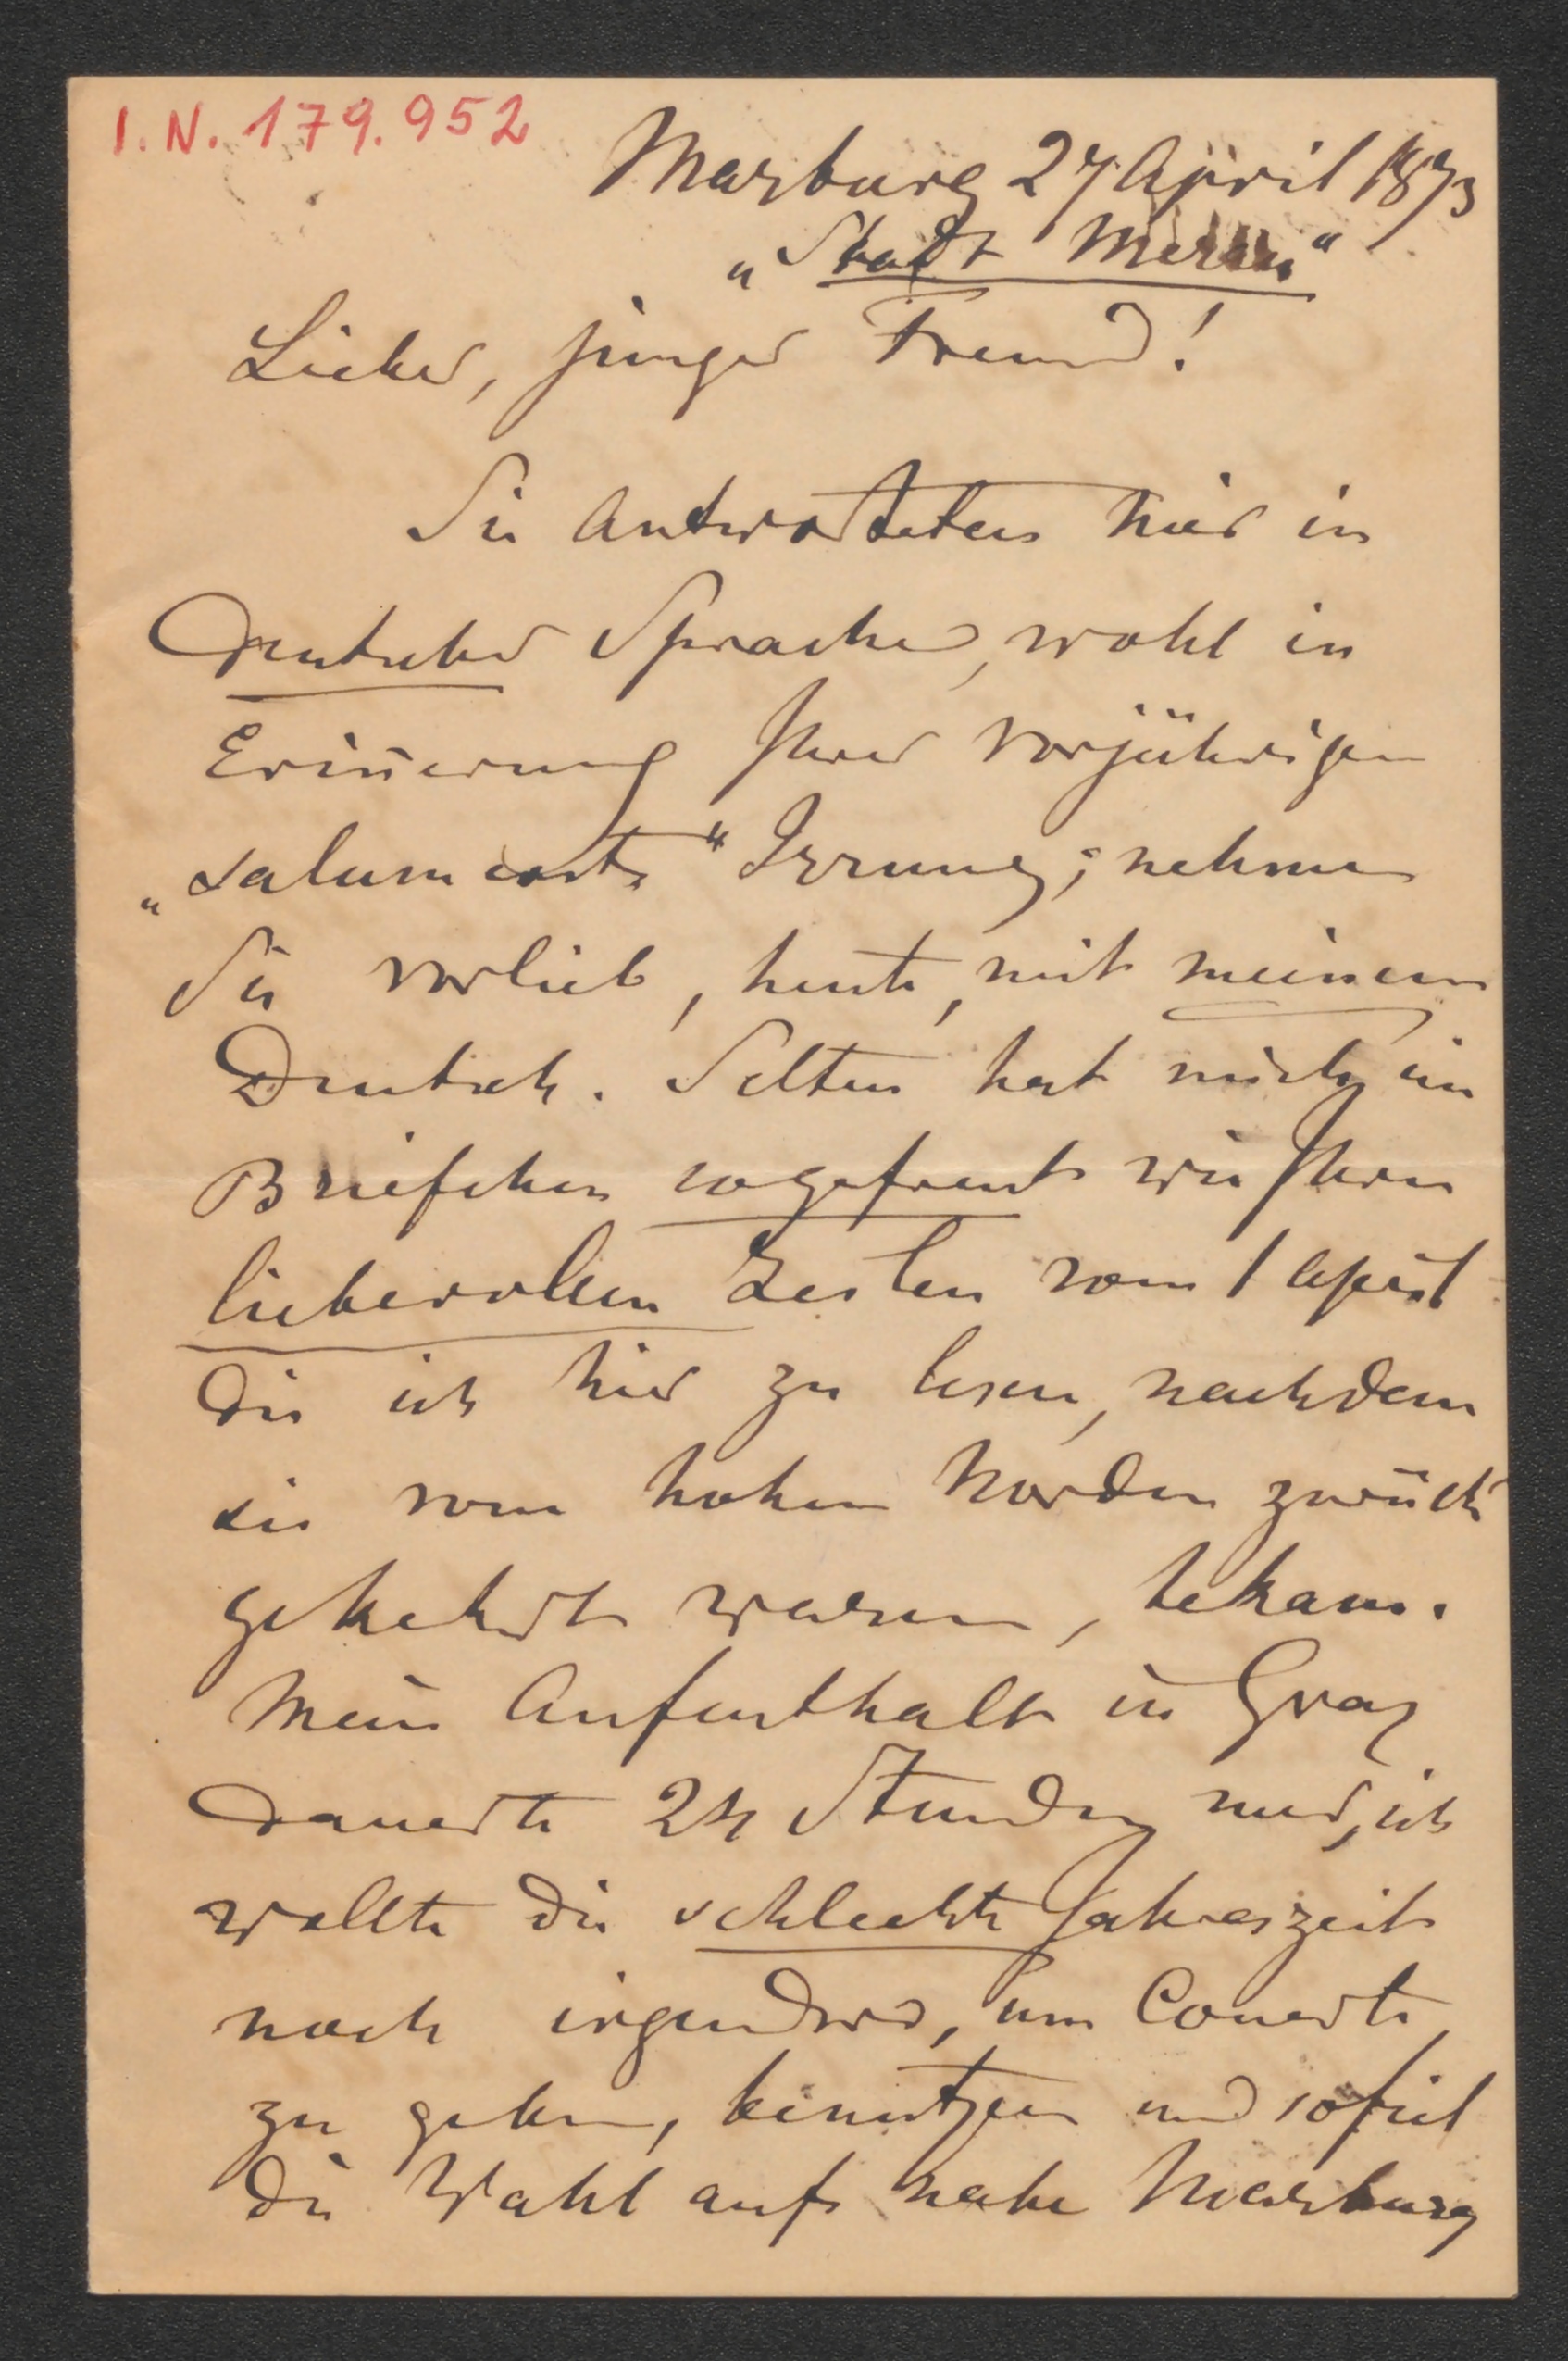 I.N. 179.952
Marburg 27 April 1873
„Stadt Meran“
Lieber, junger Freund!
Sie antworteten mir in
deutscher Sprache, wohl in
Erin̄erung Ihrer vorjährigen
„ “ Irrung; nehmen
Sie vorlieb, heute, mit meinem
Deutsch. Selten hat mich ein
Briefchen so gefreut wie Ihren
liebevollen Zeilen vom 1 April
die ich hier zu lesen, nachdem
sie vom hohen Norden zurück
gekehrt waren, bekam.
Mein Aufenthalt in Graz
dauerte 24 Stunden nur, ich
wollte die schlechte Jahreszeit
noch irgendwo, um Concerte
zu geben, benützen und so fiel
die Wahl aufs nahe Marburg